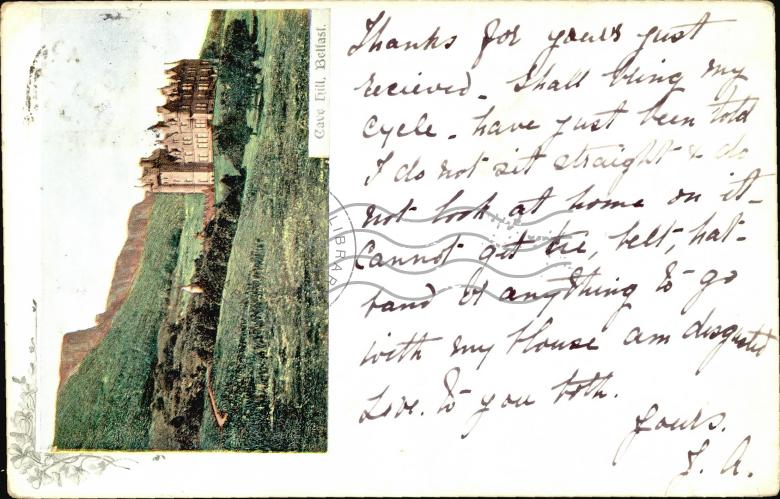 Cave Hill, Belfast.
Thanks for yours just
recieved - Shall bring my
cycle - have just been told
I do not sit straight & do
not look at home on it -
Cannot get tie, belt, hat-
band or anything to go
with my blouse am disgusted
Love. to you both.
Yours.
J. A.
LIBRAR